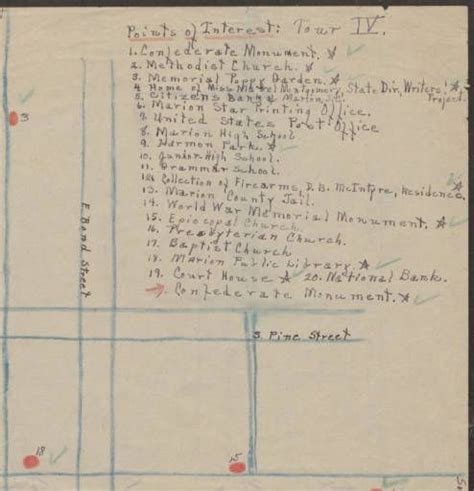 Points of Interest: Tour IV.
1. Confederate Monument. ☆
2. Methodist Church. ☆
3. Memorial Poppy Garden. ☆
4 Home of Miss Mabel Montgomery, State Dir, Writers' Project
5. Citizens Bank of Marion, S.C.
6. Marion Star Printing Office.
7. United States Post Office
8. Marion High School
9. Harmon Park. ☆
10. Junior High School.
11. Grammar School.
12. Collection of Firearms, D. B. McIntyre, Residence ☆
13. Marion County Jail.
14. World War Memorial Monument. ☆
15. Episcopal Church.
16. Presbyterian Church.
17. Baptist Church
18. Marion Public Library. ☆
19. Court House ☆ 20. National Bank.
→ 1. Confederate Monument. ☆
3
E. Bond Street
S. Pine Street
18
15